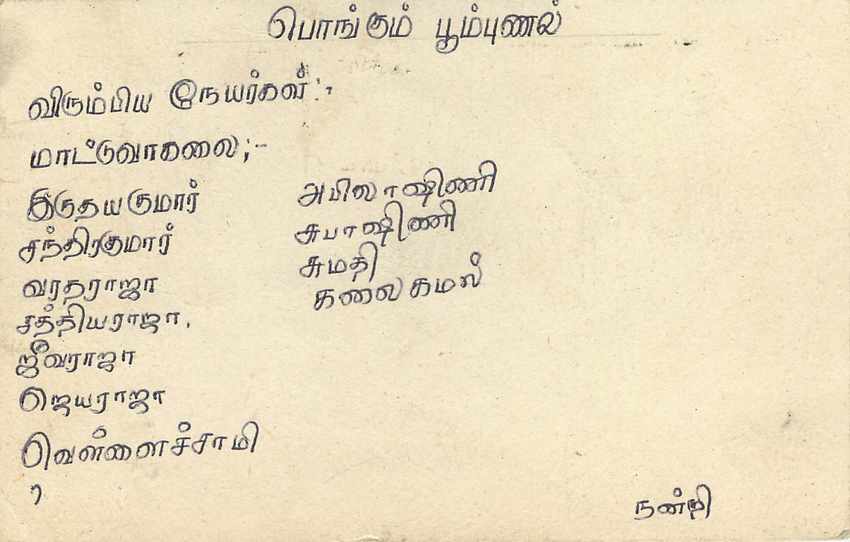 பொங்கும் பூம்புணல்
விரும்பிய நேயர்கள்:-
மாட்டுவாகலை;-
இருதயகுமார்
சந்திரகுமார்
வரதராஜா
சத்தியராஜா,
ஜீவராஜா
ஜெயராஜா
வெள்ளைச்சாமி
அபிலாஷிணி
சுபாஷிணி
சுமதி
கலைகமல்
நன்றி